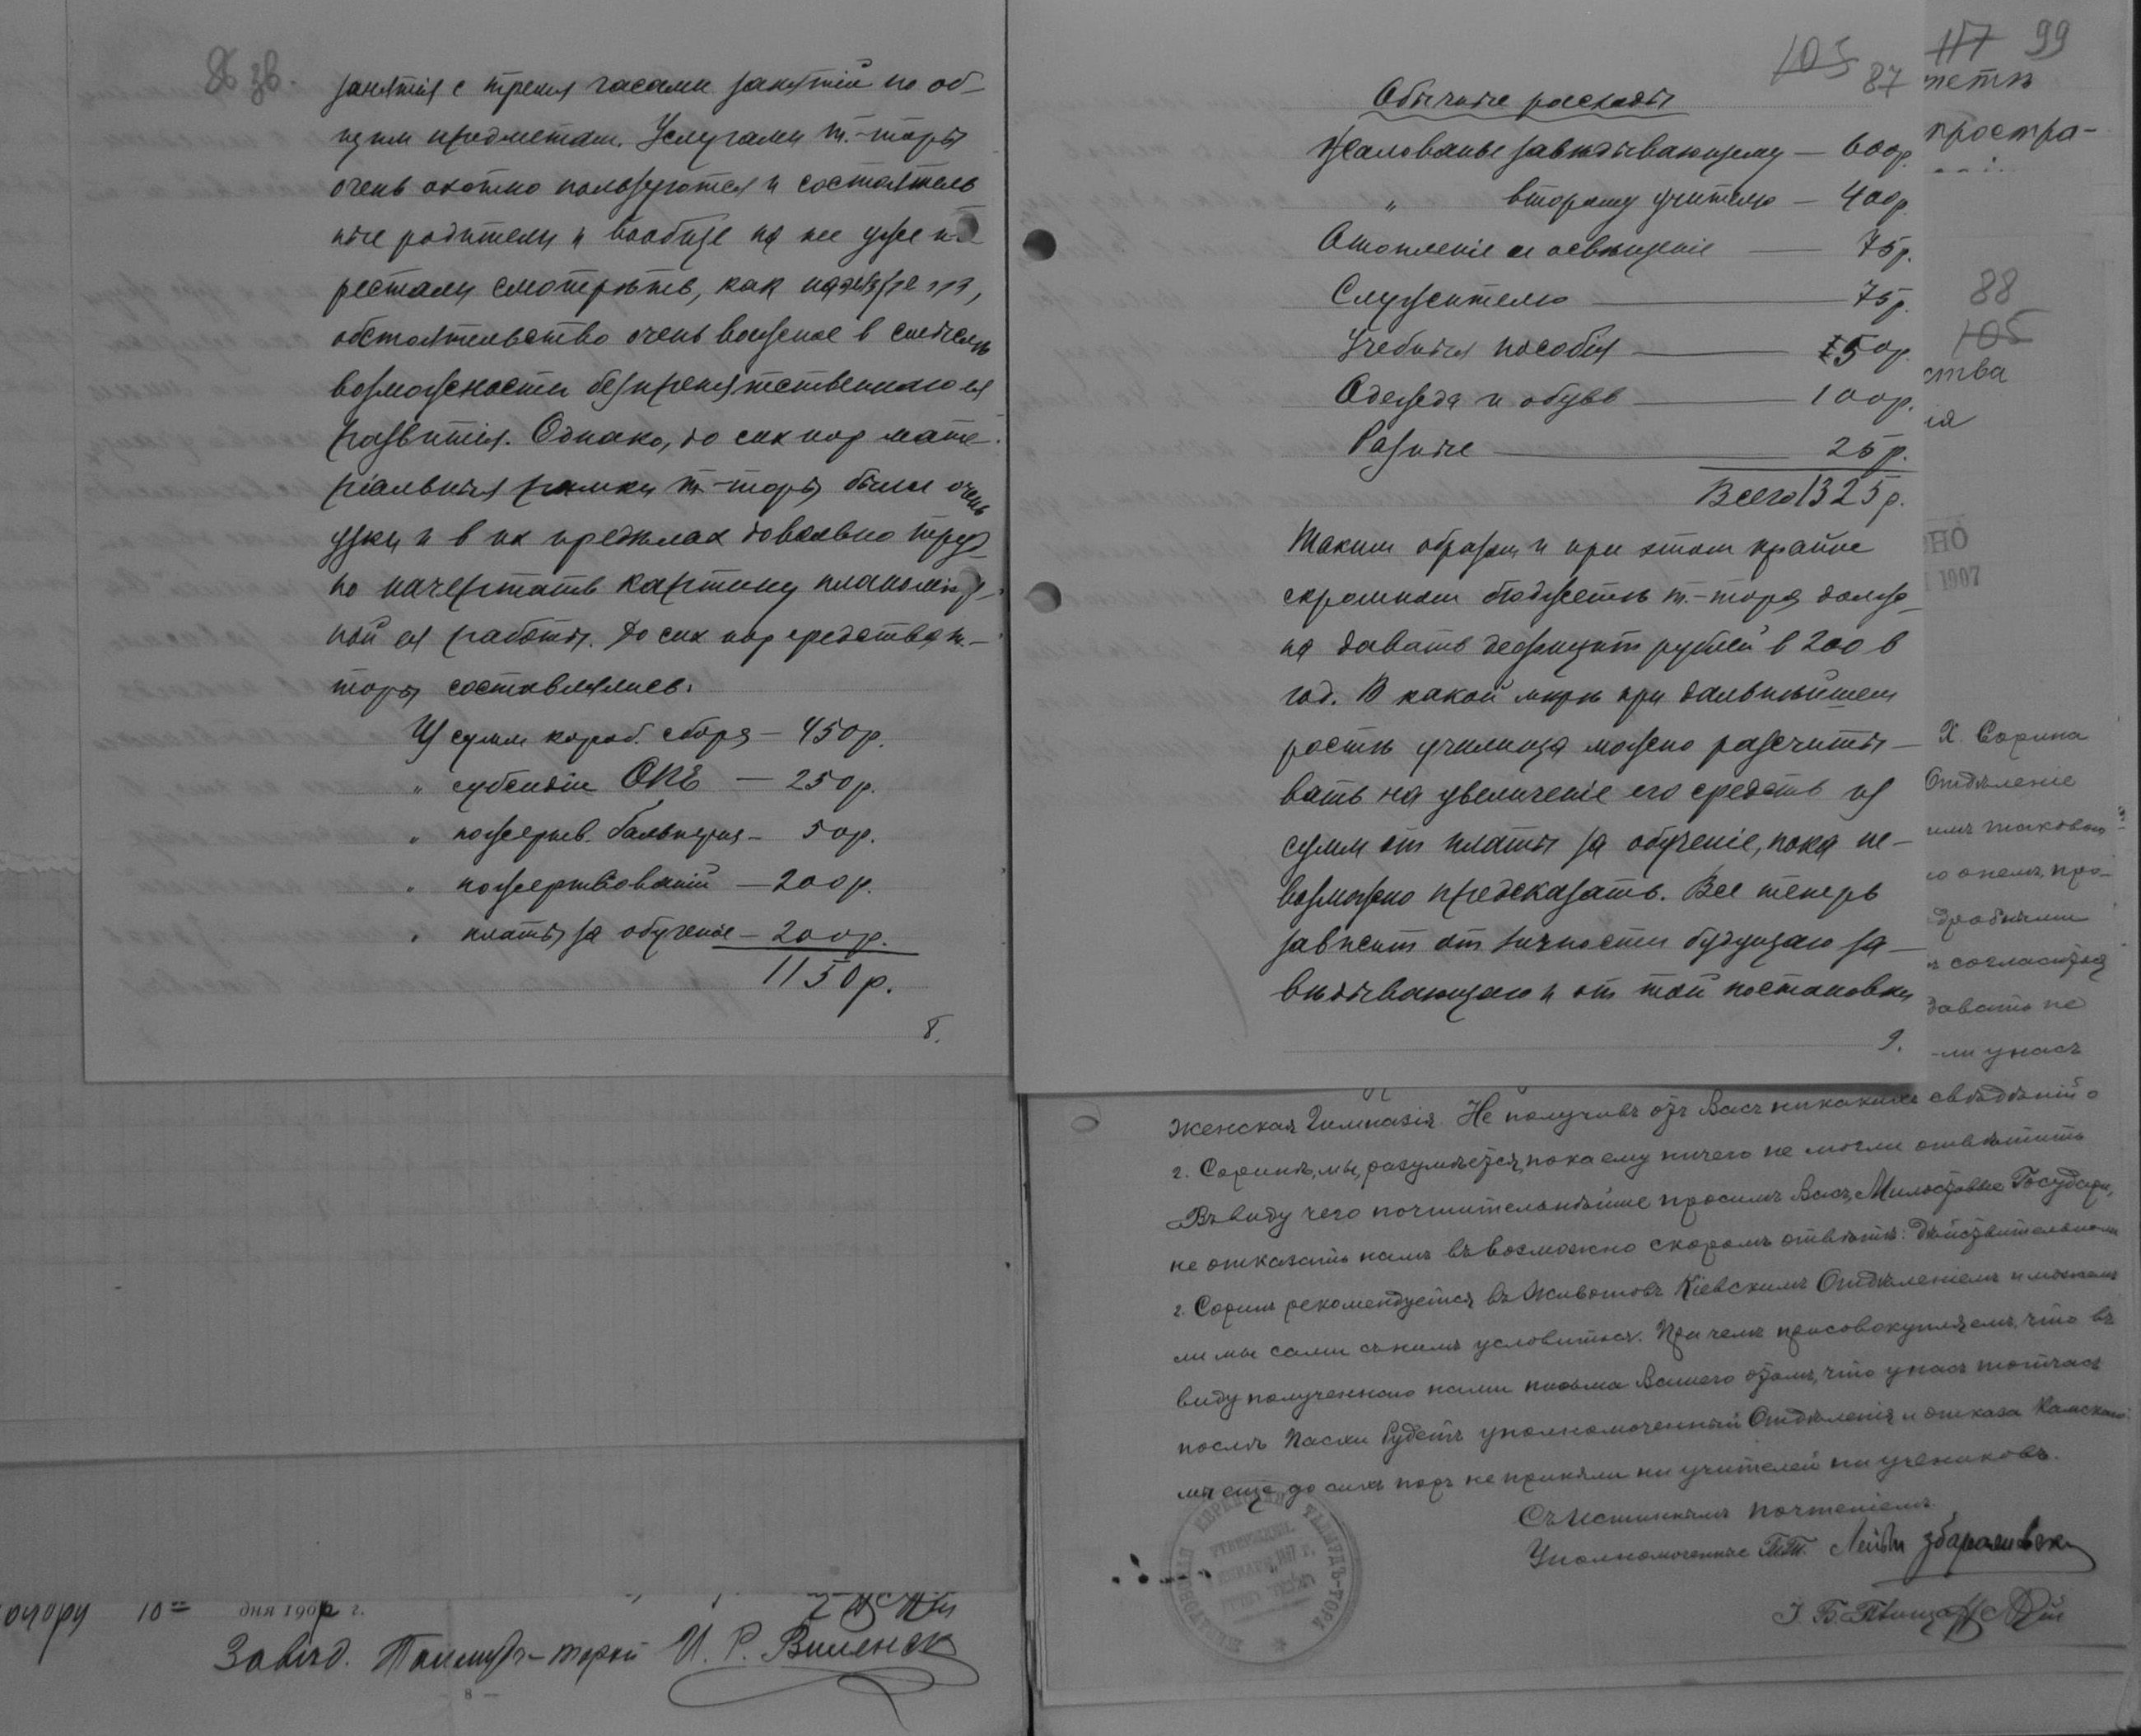 86 зв.
занятія с тремя часами занятій по об-
щим предметам. Услугами т.-торы
очень охотно пользуются и состоятель
ные родители и вообще на нее уже пе
рестали смотреть, как на
обстоятельство очень важное в смысле
возможности безпрепятственнаго ея
развитія. Однако, до сих пор мате-
ріальныя рамки т-торы были очень
узки и в их предѣлах довольно труд
но начертать картину планомѣр-
ной ея работы. До сих пор средства т.-
торы составлялись:
Из сумм короб. сбора — 450р.
" субсидіи ОПЕ — 250р.
" пожертв. Бальнерия — 50р.
" пожертвованій — 200р.
" платы за обученіе — 200р.
1150р.
8.
105 87
Обычные расходы
Жалованье завѣдывающему — 600р.
" второму учителю — 400р.
Отопленіе и освѣщеніе — 75р.
Служителю — 75р.
Учебныя пособія — 50р.
Одежда и обувь — 100р.
Разные — 25р.
Всего 1325р.
Таким образом и при этом крайне
скромном бюджетѣ т.-тора долж-
на давать дефицит рублей в 200 в
год. В какой мѣрѣ при дальнѣйшем
ростѣ училища можно разсчиты-
вать на увеличеніе его средств из
сумм от платы за обученіе, пока не-
возможно предсказать. Все теперь
зависит от личности будущаго за-
вѣдывающаго и от той постановки
9.
117 99
четъ
простра-
88
105
ства
ія
НО
1907
Х. Сорина
Отдѣленіе
имъ таковой
о онемъ, про-
дробными
ъ согласится
давать не
-ли у насъ
женская Гимназія. Не получивъ отъ Васъ никакихъ свѣдѣній о
г. Соринѣ, мы, разумѣется, пока ему ничего не могли отвѣтить
Въ виду чего почтительнѣйше просимъ Васъ, Милостивые Государи,
не отказать намъ въ возможно скоромъ отвѣтѣ: дѣйствительно ли
г. Соринъ рекомендуется въ Животовъ Кіевскимъ Отдѣленіемъ и можемъ
ли мы сами съ нимъ условиться. При чемъ присовокупляемъ, что въ
виду полученнаго нами письма Вашего о томъ, что у насъ тотчасъ
послѣ Пасхи будетъ уполномоченный Отдѣленія и отказа Камскаго
мы еще до сихъ поръ не приняли ни учителей ни учениковъ.
Съ истиннымъ почтеніемъ
Уполномоченные Т.Т. Лейба Збаражскій
І. Б.
ЖИВАТОВСКАЯ ЕВРЕЙСКАЯ ТАЛМУДЪ-ТОРА
10 дня 190 г.
Завѣд. Талмудъ-торой И. Р. Виленск
— 8 —